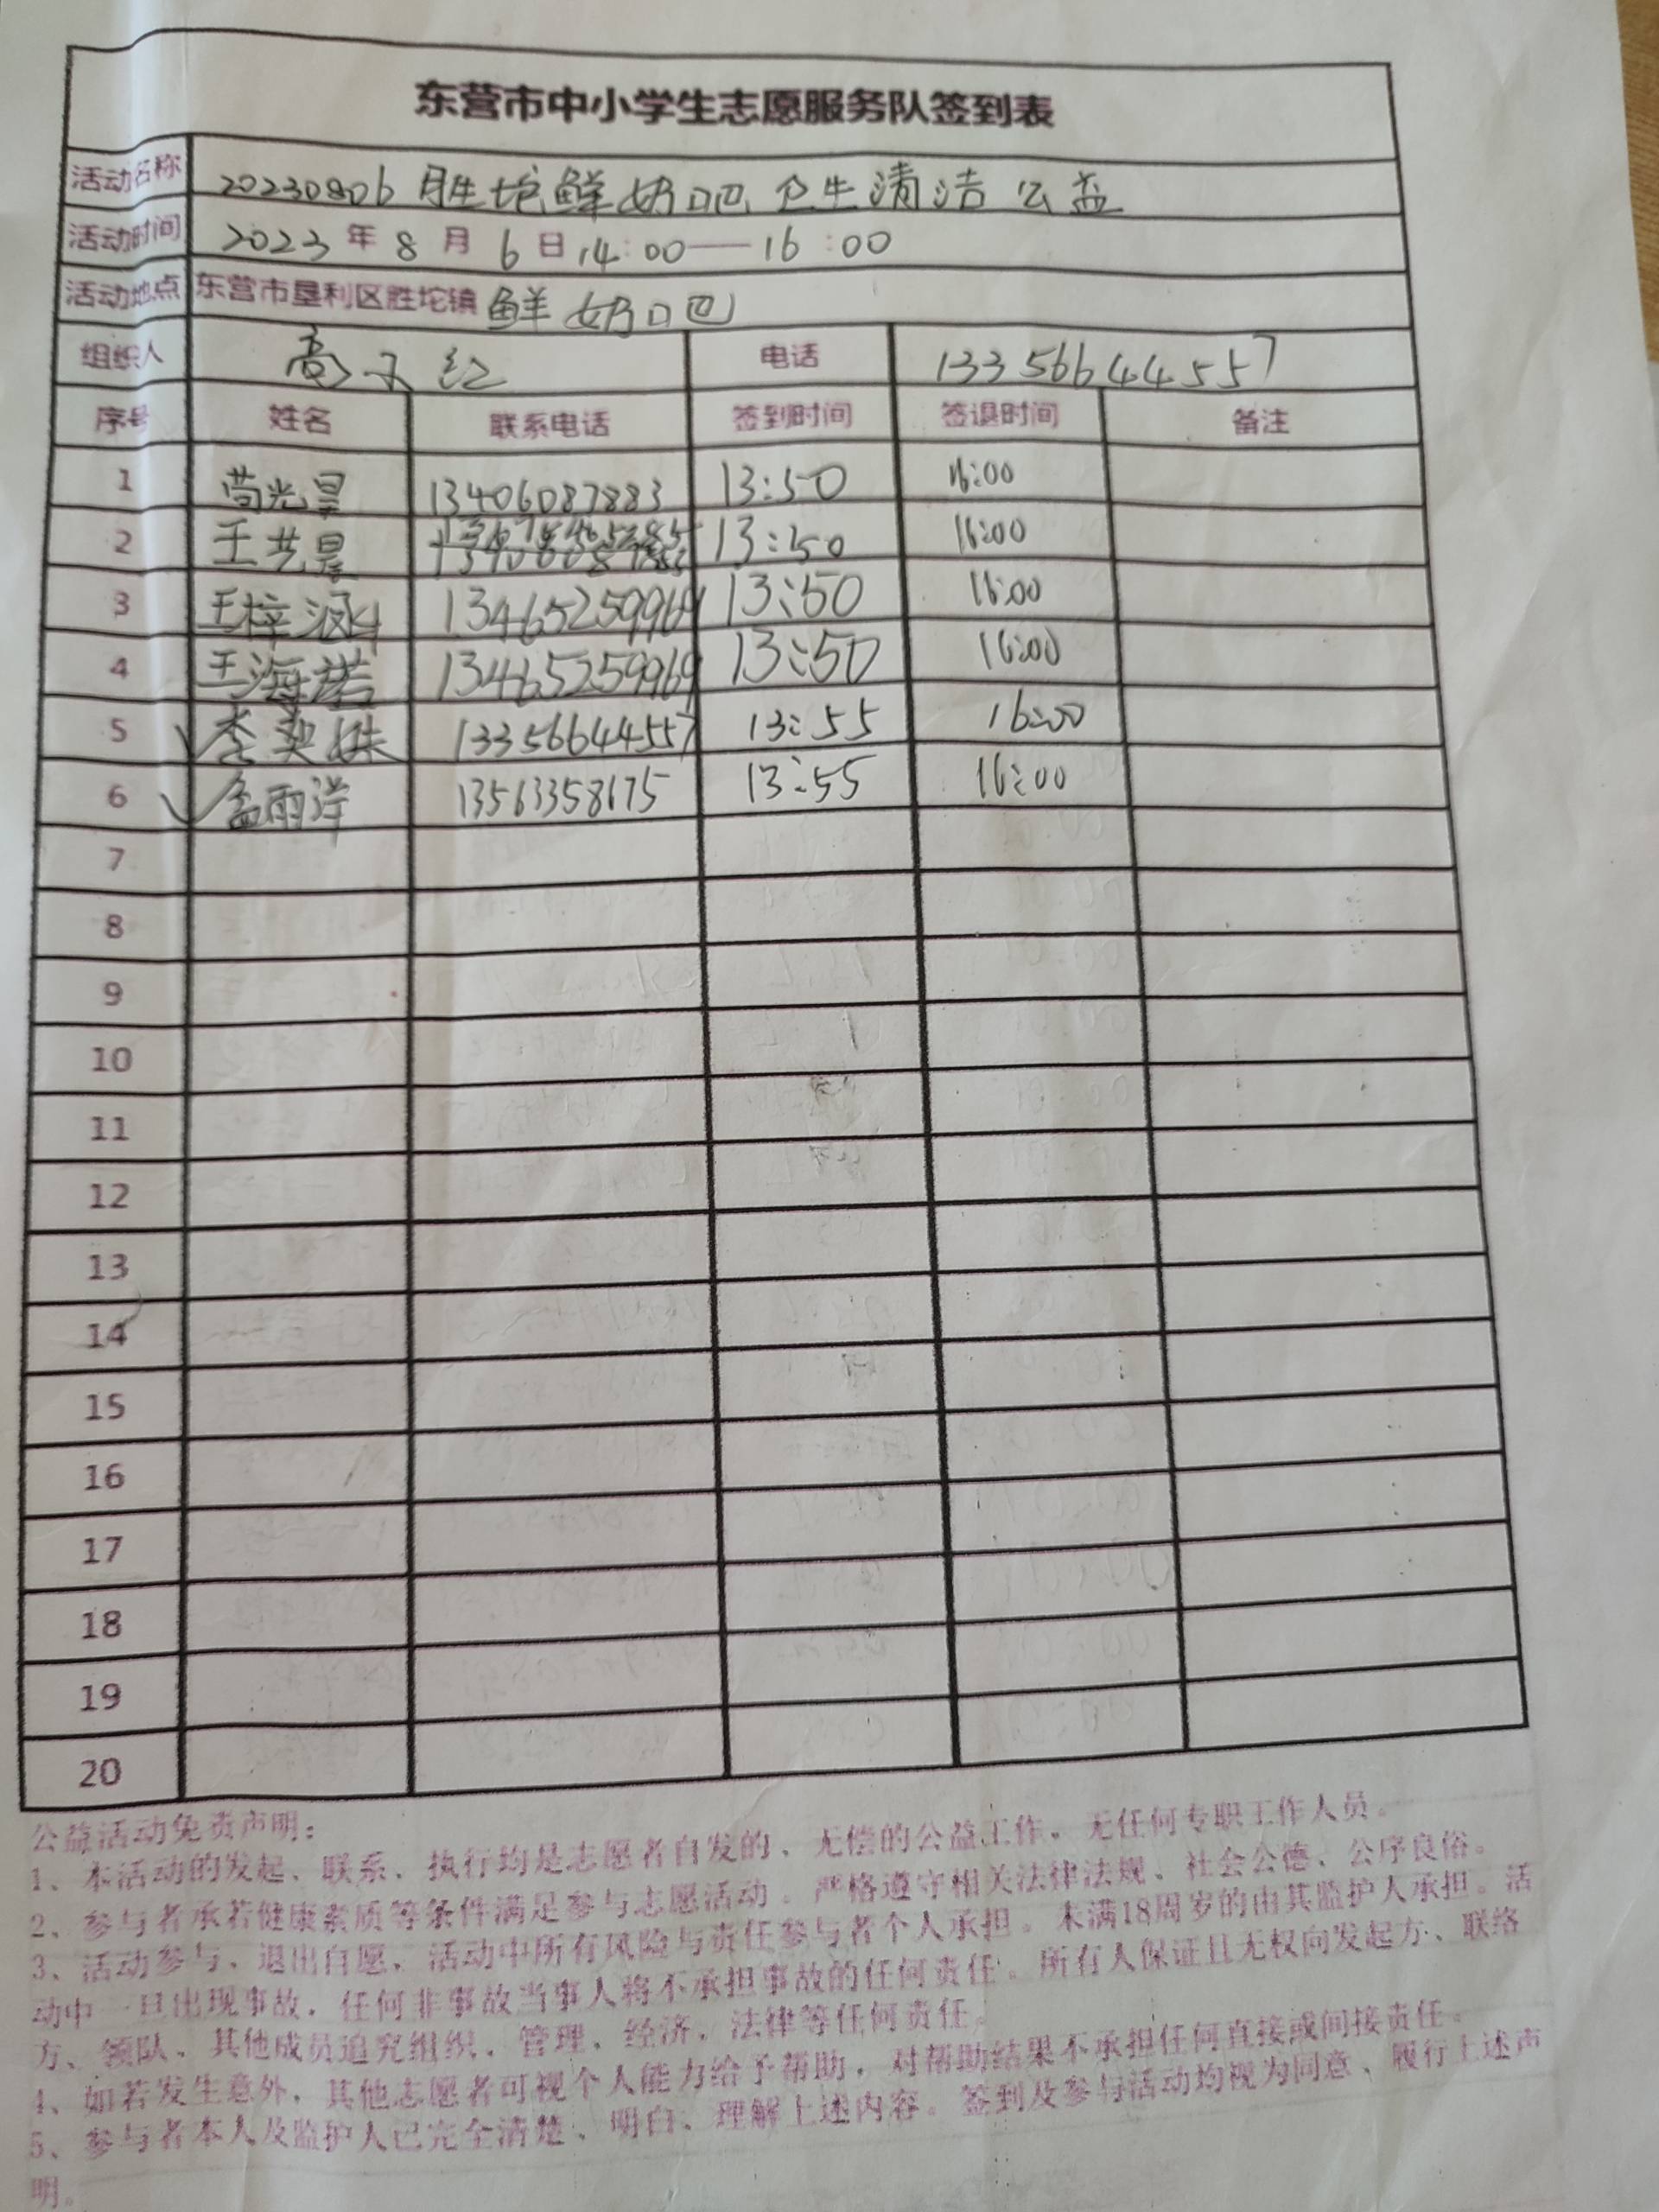 东营市中小学生志愿服务队签到表
活动名称 20230806 胜坨鲜奶吧卫生清洁公益
活动时间 2023年8月6日14:00——16:00
活动地点 东营市垦利区胜坨镇鲜奶吧
组织人 高 红 电话 13356644557
序号 姓名 联系电话 签到时间 签退时间 备注
1 苘光昊 13406087883 13:50 16:00
2 王艺晨 13:50 16:00
3 王梓涵 13465259969 13:50 16:00
4 王海诺 13465259969 13:50 16:00
5 李奕姝 13356644557 13:55 16:00
6 孟雨洋 13563358675 13:55 16:00
7
8
9
10
11
12
13
14
15
16
17
18
19
20
公益活动免责声明：
1、本活动的发起、联系、执行均是志愿者自发的、无偿的公益工作，无任何专职工作人员。
2、参与者承若健康素质等条件满足参与志愿活动。严格遵守相关法律法规、社会公德、公序良俗。
3、活动参与、退出自愿，活动中所有风险与责任参与者个人承担。未满18周岁的由其监护人承担。活
动中一旦出现事故，任何非事故当事人将不承担事故的任何责任。所有人保证且无权向发起方、联络
方、领队、其他成员追究组织、管理、经济、法律等任何责任。
4、如若发生意外，其他志愿者可视个人能力给予帮助，对帮助结果不承担任何直接或间接责任。
5、参与者本人及监护人已完全清楚、明白、理解上述内容。签到及参与活动均视为同意、履行上述声
明。